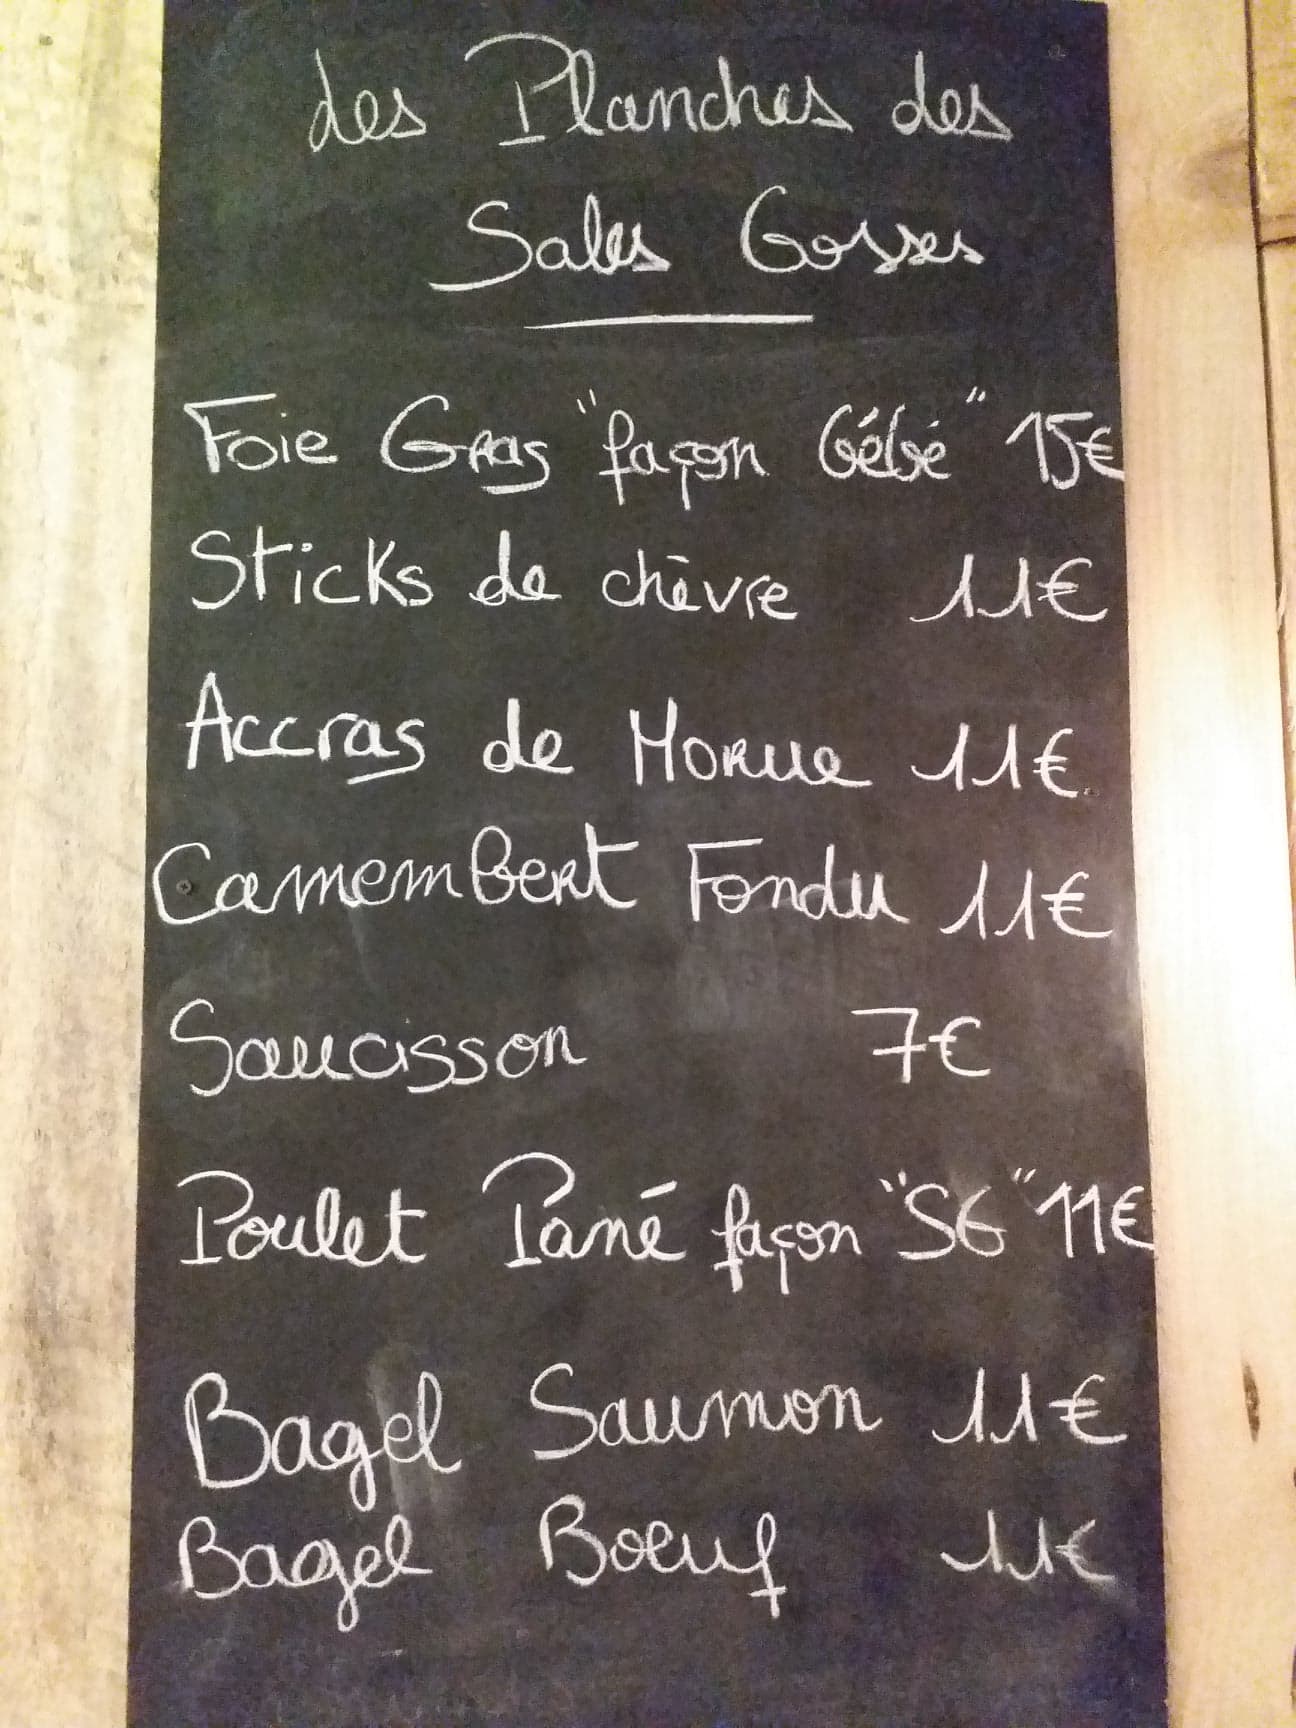 Les Planches des
Sales Gosses
Foie Gras "façon Gébé" 15€
Sticks de chèvre 11€
Accras de Morue 11€
Camembert Fondu 11€
Saucisson 7€
Poulet Pané façon "SG" 11€
Bagel Saumon 11€
Bagel Boeuf 11€